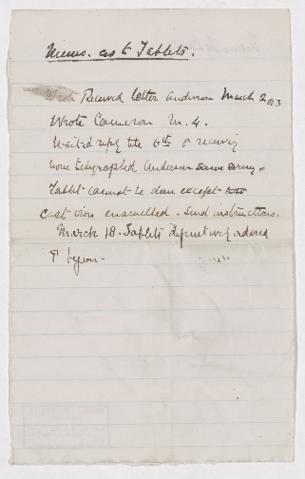 Memo. as to Tablets.
Wrote Received letter Anderson March 2
Wrote Cameron M. 4.
Waited reply till 6th & receiving
none telegraphed Anderson same day -
Tablet cannot be done except
cast iron enamelled - Send instructions.
March 18. Tablets